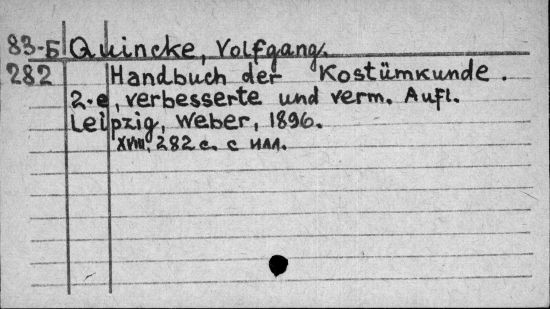 83-Б Quincke, Volfgang.
282 Handbuch der Kostümkunde.
2.e, verbesserte und verm. Aufl.
Leipzig, Weber, 1896.
XVIII, 282 с. с илл.